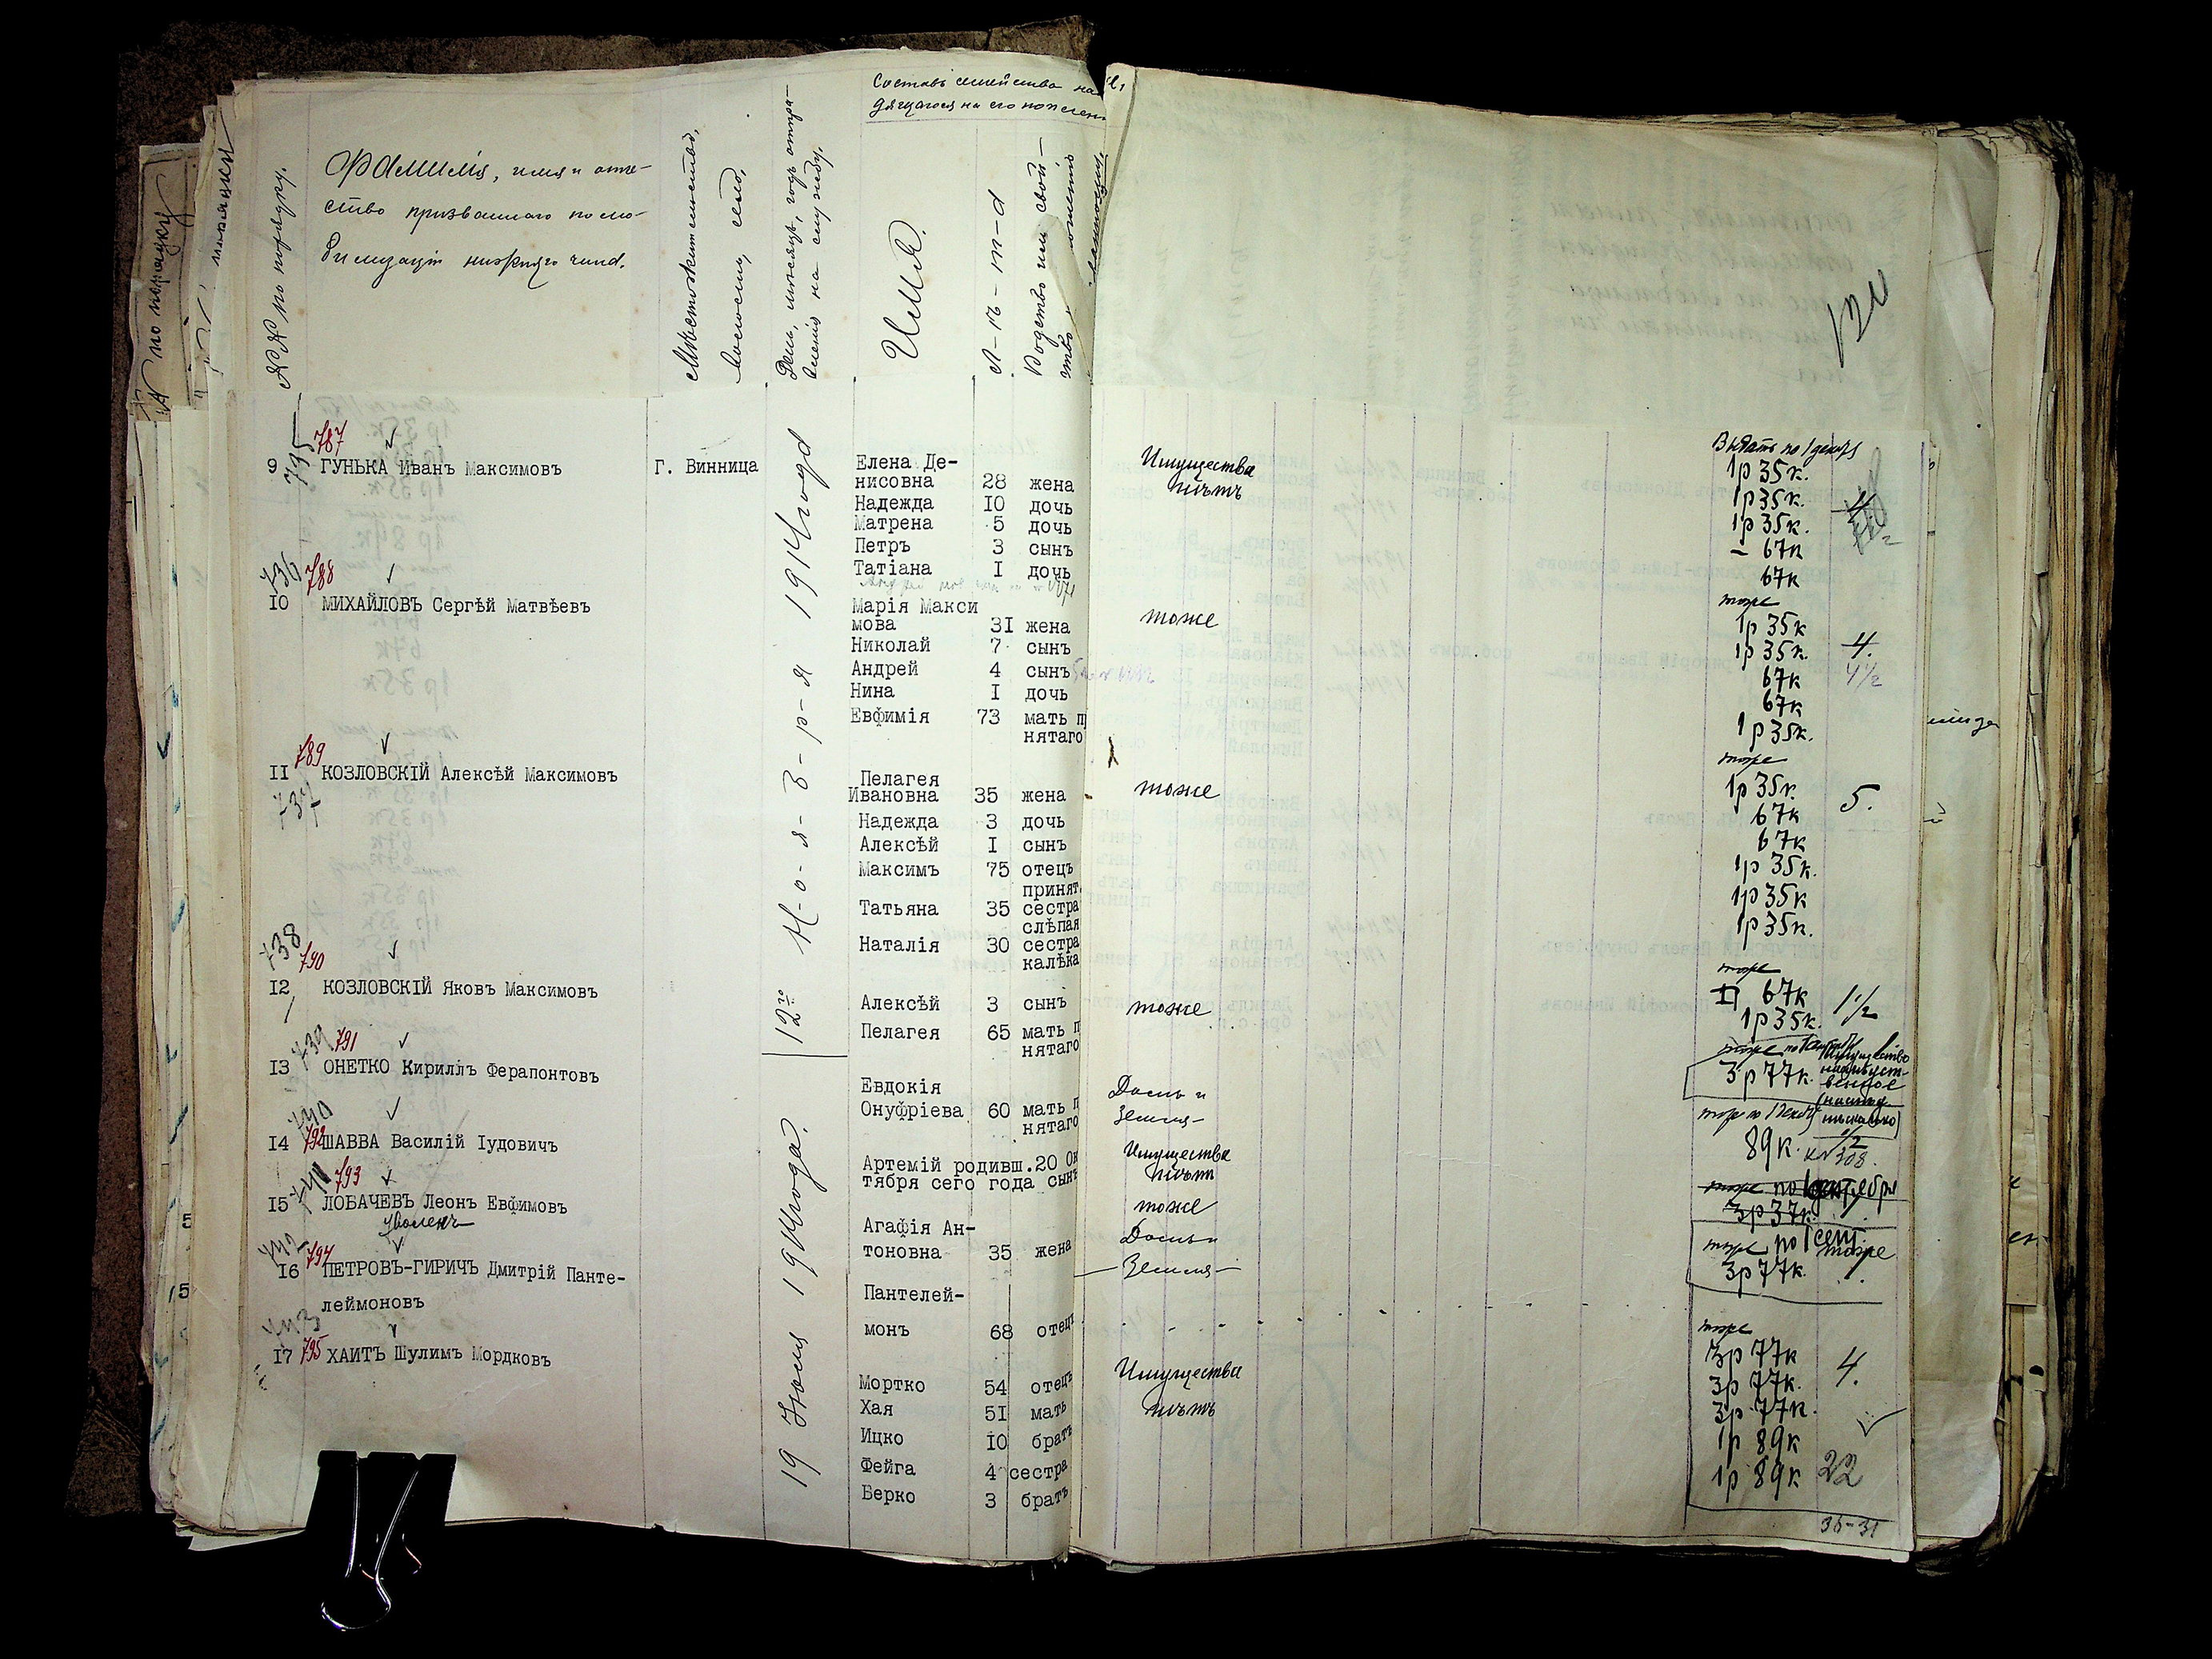 Составъ семейства на
дящагося на его попечен
№№ по порядку.
Фамилія, имя и отче-
ство призваннаго по мо-
билизаціи нижняго чина.
Мѣстожительство,
волость, село,
День, мѣсяцъ, годъ отпра-
вленія на службу.
Имя.
Л-ѣ-т-а
Родство или свой-
ство
№ по порядку
Выдать по 1 декабря
735 787
9 ГУНЬКА Иванъ Максимовъ Г. Винница
Елена Де-
нисовна 28 жена
Надежда IO дочь
Матрена 5 дочь
Петръ 3 сынъ
Татіана I дочь
Имущества
нѣтъ
1р 35к.
1р 35к.
1р 35к.
- 67к
67к
736 788
IO МИХАЙЛОВЪ Сергѣй Матвѣевъ
Марія Макси
мова 3I жена
Николай 7 сынъ
Андрей 4 сынъ
Нина I дочь
Евфимія 73 мать п
нятаго
тоже
тоже
1р 35к
1р 35к. 4.
67к 4 1/2
67к
1р 35к.
789
II КОЗЛОВСКІЙ Алексѣй Максимовъ
737
Пелагея
Ивановна 35 жена
Надежда 3 дочь
Алексѣй I сынъ
Максимъ 75 отецъ
принят.
Татьяна 35 сестра
слѣпая
Наталія 30 сестра
калѣка
тоже
тоже
1р 35к. 5.
67к
67к
1р 35к.
1р 35к
1р 35к.
738 790
I2 КОЗЛОВСКІЙ Яковъ Максимовъ
Алексѣй 3 сынъ
Пелагея 65 мать п
нятаго
тоже
тоже
67к 1 1/2
1р 35к.
12го Н-о-я-б-р-я 1914 года
739 791
I3 ОНЕТКО Кириллъ Ферапонтовъ
Евдокія
Онуфріева 60 мать п
нятаго
Домъ и
земля-
3р 77к.
740 792
I4 ШАВВА Василій Іудовичъ
Артемій родивш.20 Ок
тября сего года сынъ
Имущества
нѣтъ
89к. 1/2
741 793
I5 ЛОБАЧЕВЪ Леонъ Евфимовъ
Агафія Ан-
тоновна 35 жена
тоже
3р 37к.
742 794
I6 ПЕТРОВЪ-ГИРИЧЪ Дмитрій Панте-
леймоновъ
Пантелей-
монъ 68 отецъ
Домъ и
- Земля -
тоже по 1 сент. тоже
3р 77к. 1.
743 795
I7 ХАИТЪ Шулимъ Мордковъ
Мортко 54 отецъ
Хая 5I мать
Ицко IO братъ
Фейга 4 сестра
Берко 3 братъ
Имущества
нѣтъ
тоже
3р 77к 4.
3р 77к.
3р 77к.
1р 89к
1р 89к 22
19 Іюля 1914 года.